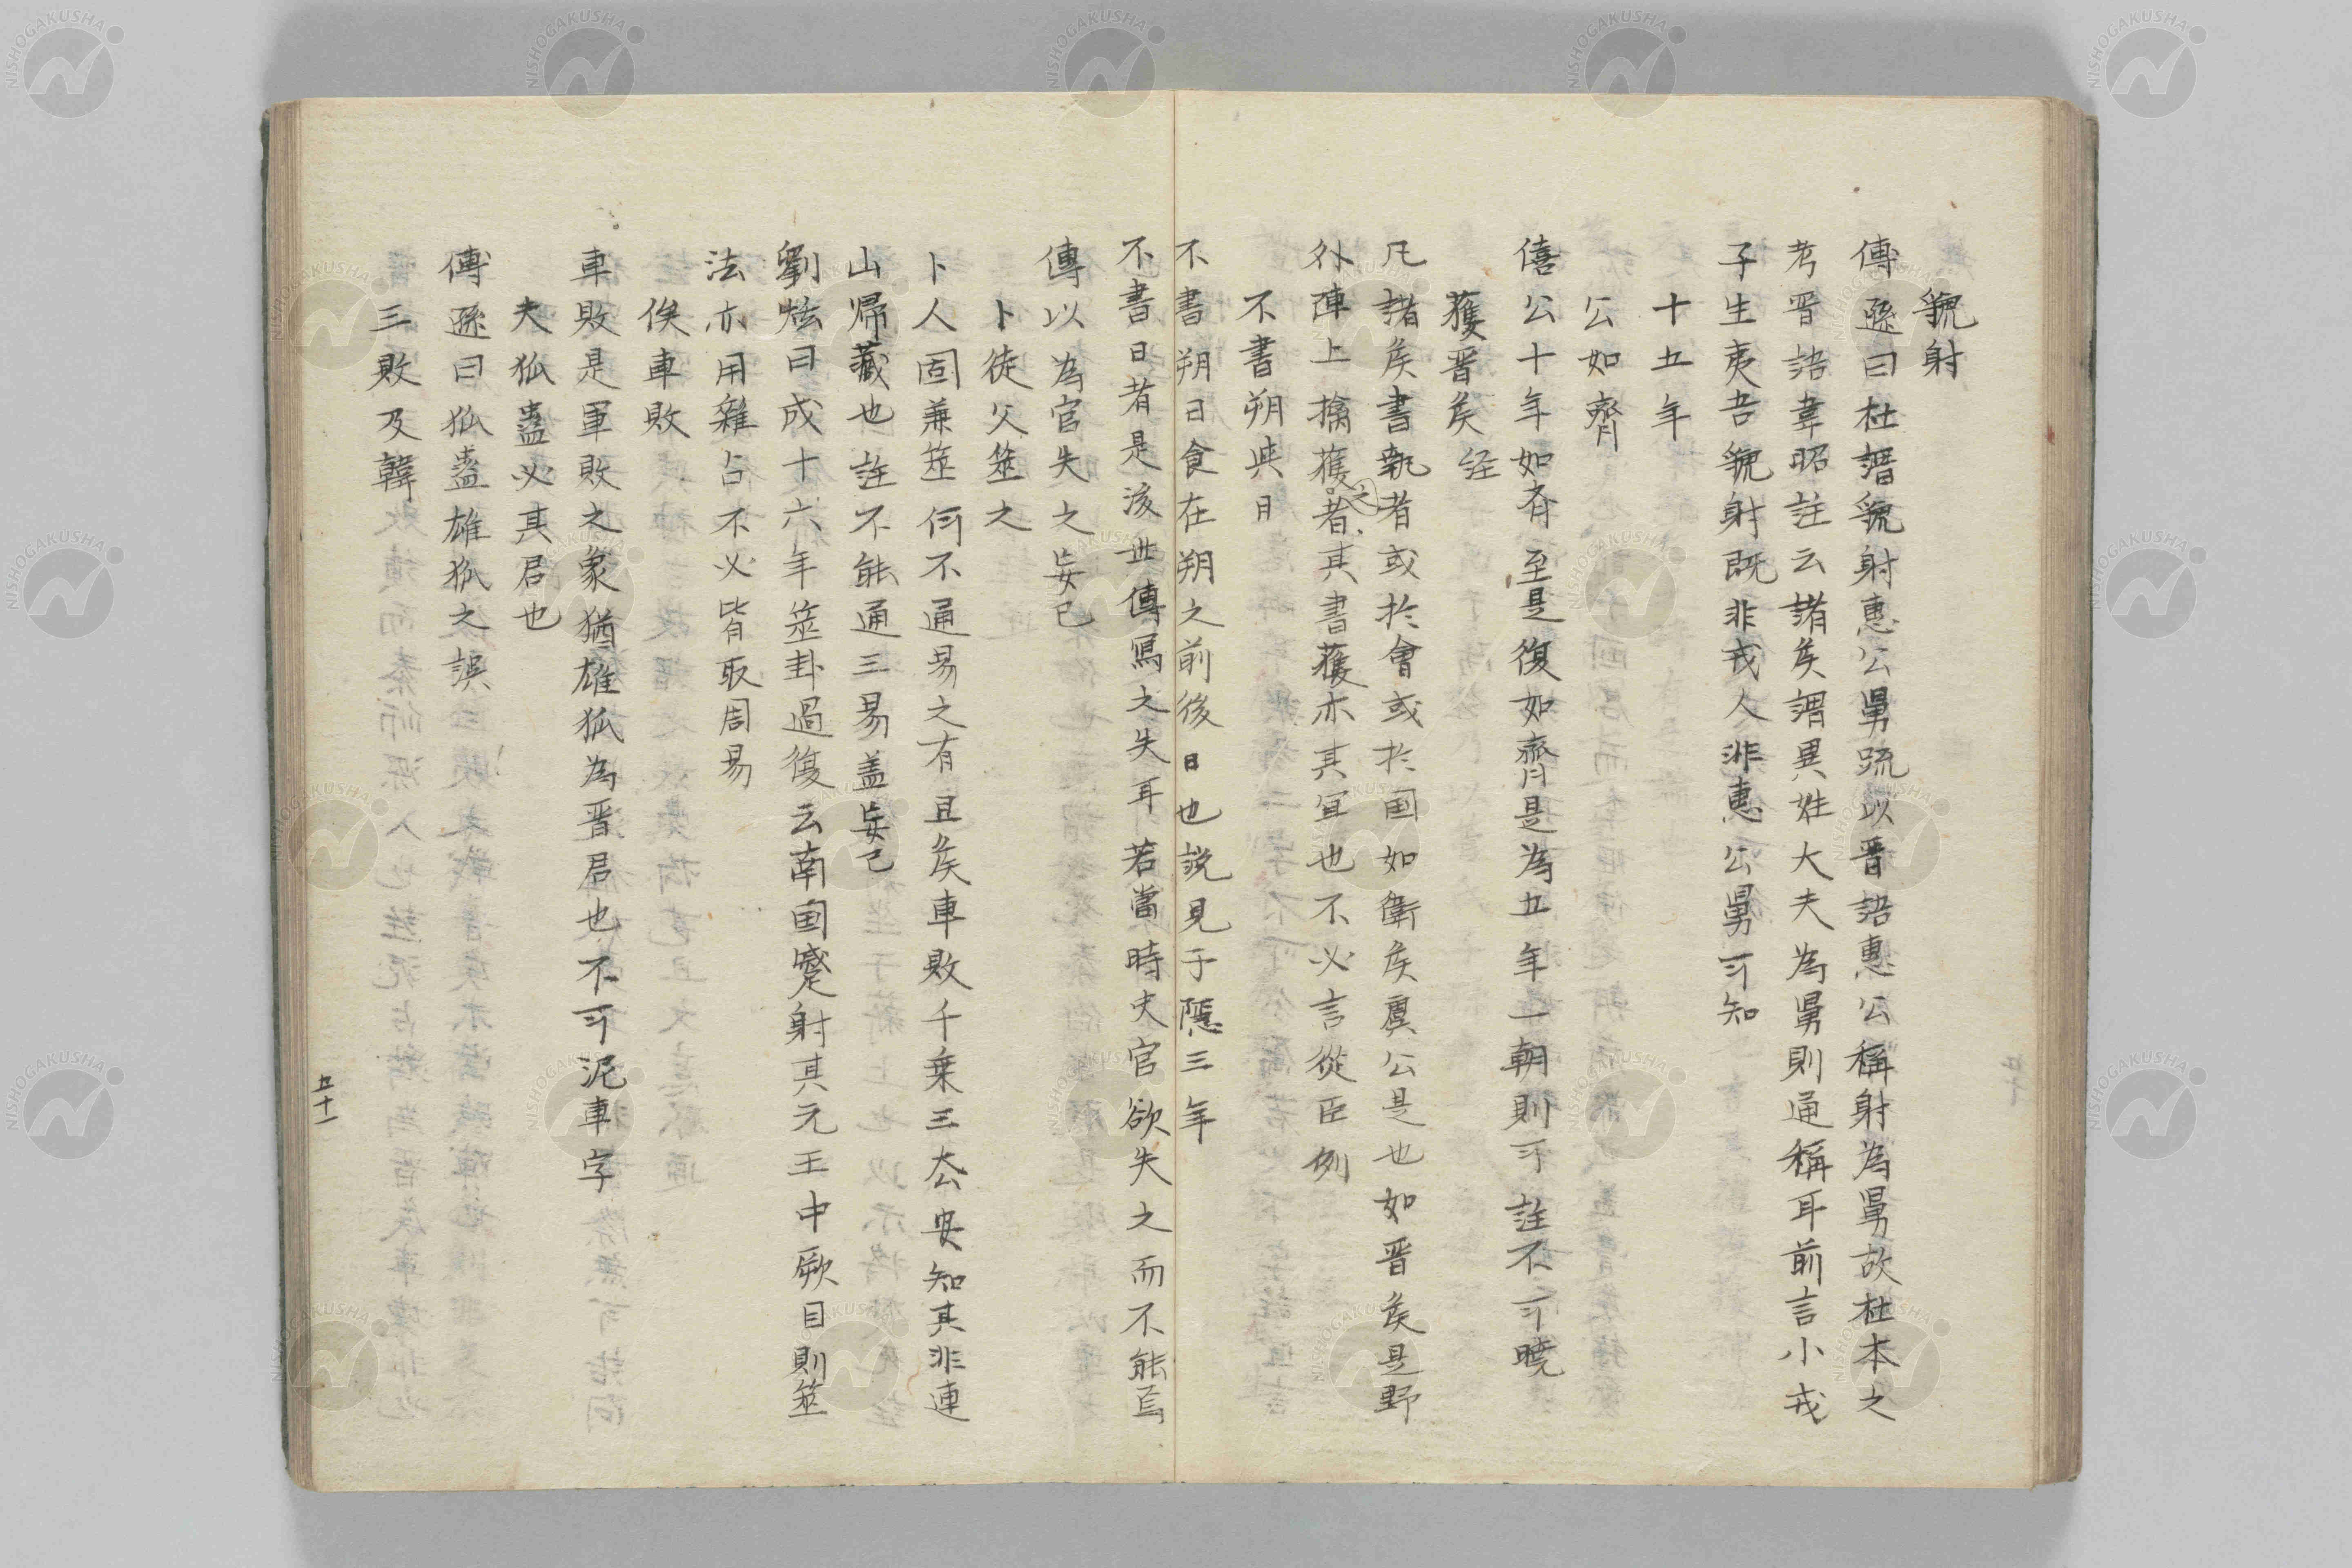 貌射
傳遜曰杜謂貌射惠公舅䟽以晋語惠公稱射為舅故杜本之
考晋語韋昭註云諸矦謂異姓大夫為舅則通稱耳前言小戎
子生夷吾貌射既非戎人非惠公舅可知
十五年
公如齊
僖公十年如斉至是復如齊是為五年一朝則可註不可曉
獲晋矦 経
凡諸矦書執者或於會或於国如衛矦虞公是也如晋矦是野
外陣上擒獲之者其書獲亦其宜也不必言從臣例
不書朔与日
不書朔日食在朔之前後日也説見于隠三年
不書日者是後世傳寫之失耳若當時史官欲失之而不能焉
傳以為官失之妄已
卜徒父筮之
卜人固兼筮何不通易之有且矦車敗千乗三去安知其非連
山帰藏也註不能通三易盖妄已
劉炫曰成十六年筮卦遇復云南国蹙射其元王中厥目則筮
法亦用雜占不必皆取周易
侯車敗
車敗是軍敗之象猶雄狐為晋君也不可泥車字
夫狐蠱必其君也
傳遜曰狐蠱雄狐之誤
三敗及韓
五十一
NISHOGAKUSHA